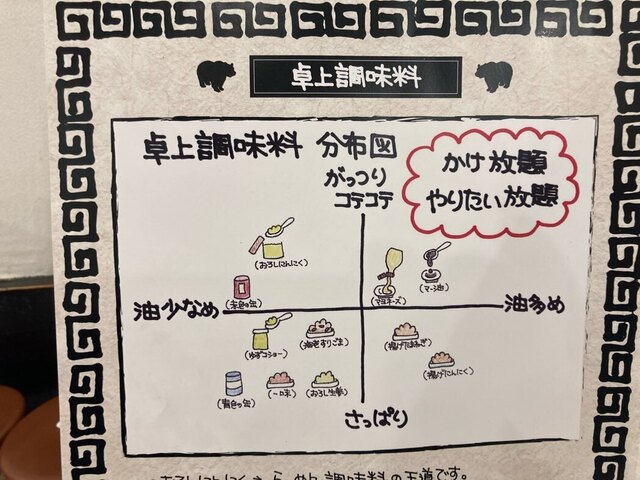 卓上調味料
卓上調味料 分布図
かけ放題
やりたい放題
がっつり
コテコテ
(おろしにんにく)
(マヨネーズ)
(マー油)
(赤色の缶)
油少なめ
油多め
(ゆずコショー)
(海老すりごま)
(揚げたまねぎ)
(揚げにんにく)
(青色の缶)
(一味)
(おろし生姜)
さっぱり
調味料の王道です。